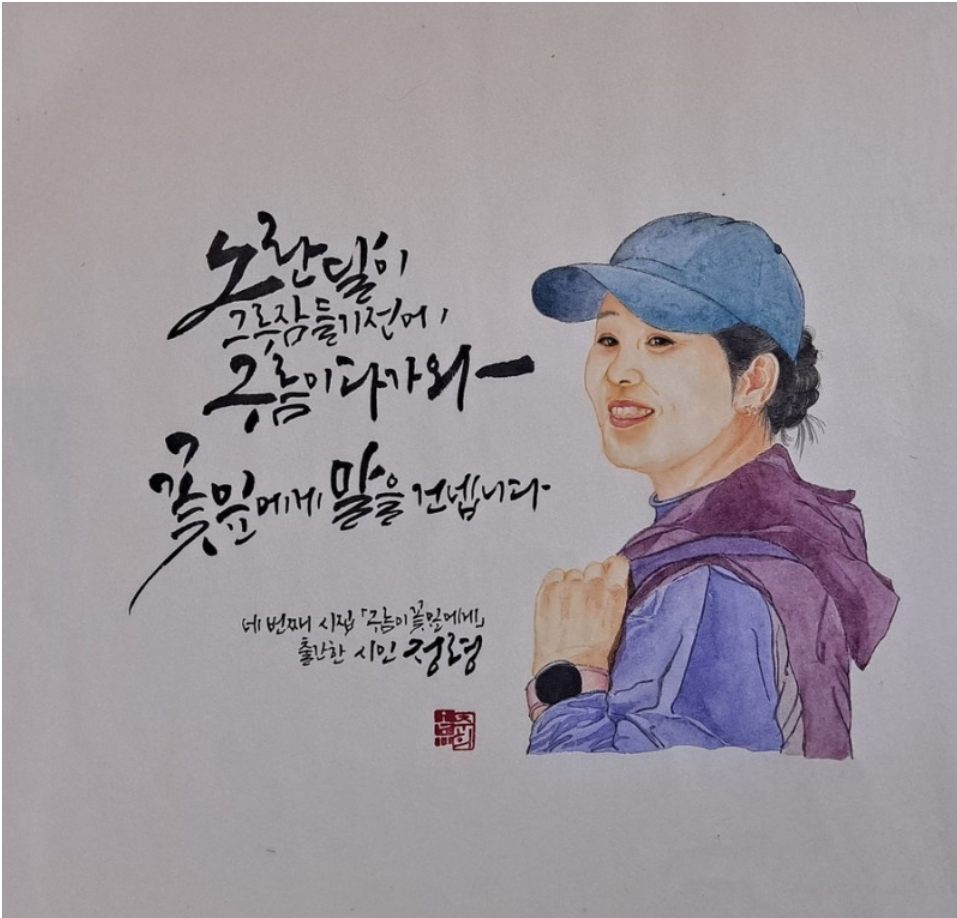 노란달이
그루잠들기전에
구름이다가와
꽃잎에게 말을 건넵니다.
네 번째 시집 「구름이 꽃잎에게」
출간한 시인 정령